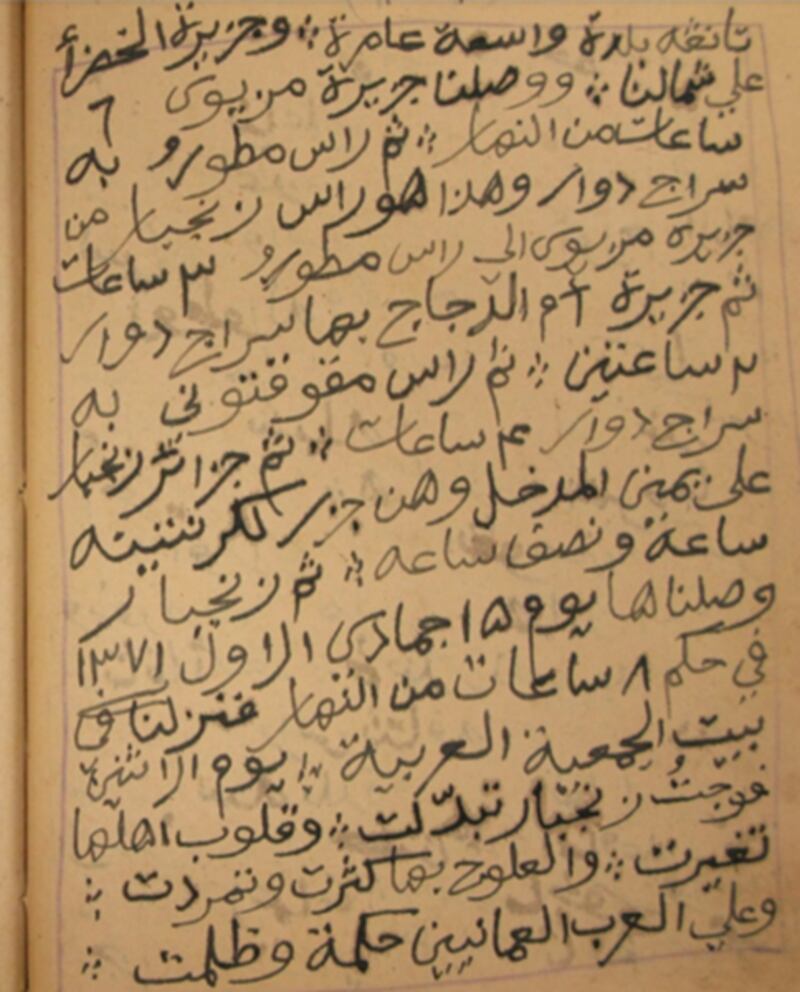 تانقه بلدة واسعة عامرة ؞ وجزيرة الخضرأ
علي شمالنا ؞ ووصلنا جزيرة مزيوى ٦
ساعات من النهار ؞ ثم راس مطورو به
سراج دوار وهذا هو راس زنجبار من
جزيرة مزيوى الى راس مطورو ٣ ساعات
ثم جزيرة أم الدجاج بها سراج دوار
٢ ساعتين ؞ ثم راس مقوقتونى به
سراج دوار ٤ ساعات ؞ ثم جزائر زنجبار
على يمين المدخل وهن جزر
ساعة ونصف ساعه ؞ ثم زنجبار
وصلناها يوم ١٥ جمادى الاول ١٣٧١
في حكم ٨ ساعات من النهار فنزلنا في
بيت الجمعية العربية ؞ يوم الاثنين
فوجدت زنجبار تبدّلت ؞ وقلوب اهلها
تغيرت ؞ والعلوج بها كثرت وتمردت ؞
وعلي العرب العمانيين حكمة وظلمت ؞